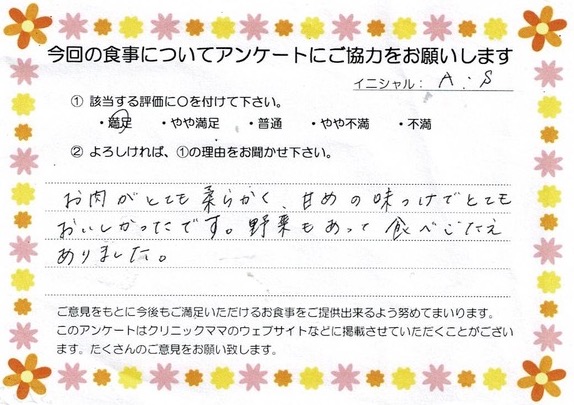 今回の食事についてアンケートにご協力をお願いします
イニシャル: A.S
① 該当する評価に○を付けて下さい。
・満足 ・やや満足 ・普通 ・やや不満 ・不満
② よろしければ、①の理由をお聞かせ下さい。
お肉がとても柔らかく、甘めの味つけでとても
おいしかったです。野菜もあって食べごたえ
ありました。
ご意見をもとに今後もご満足いただけるお食事をご提供出来るよう努めてまいります。
このアンケートはクリニックママのウェブサイトなどに掲載させていただくことがござい
ます。たくさんのご意見をお願い致します。